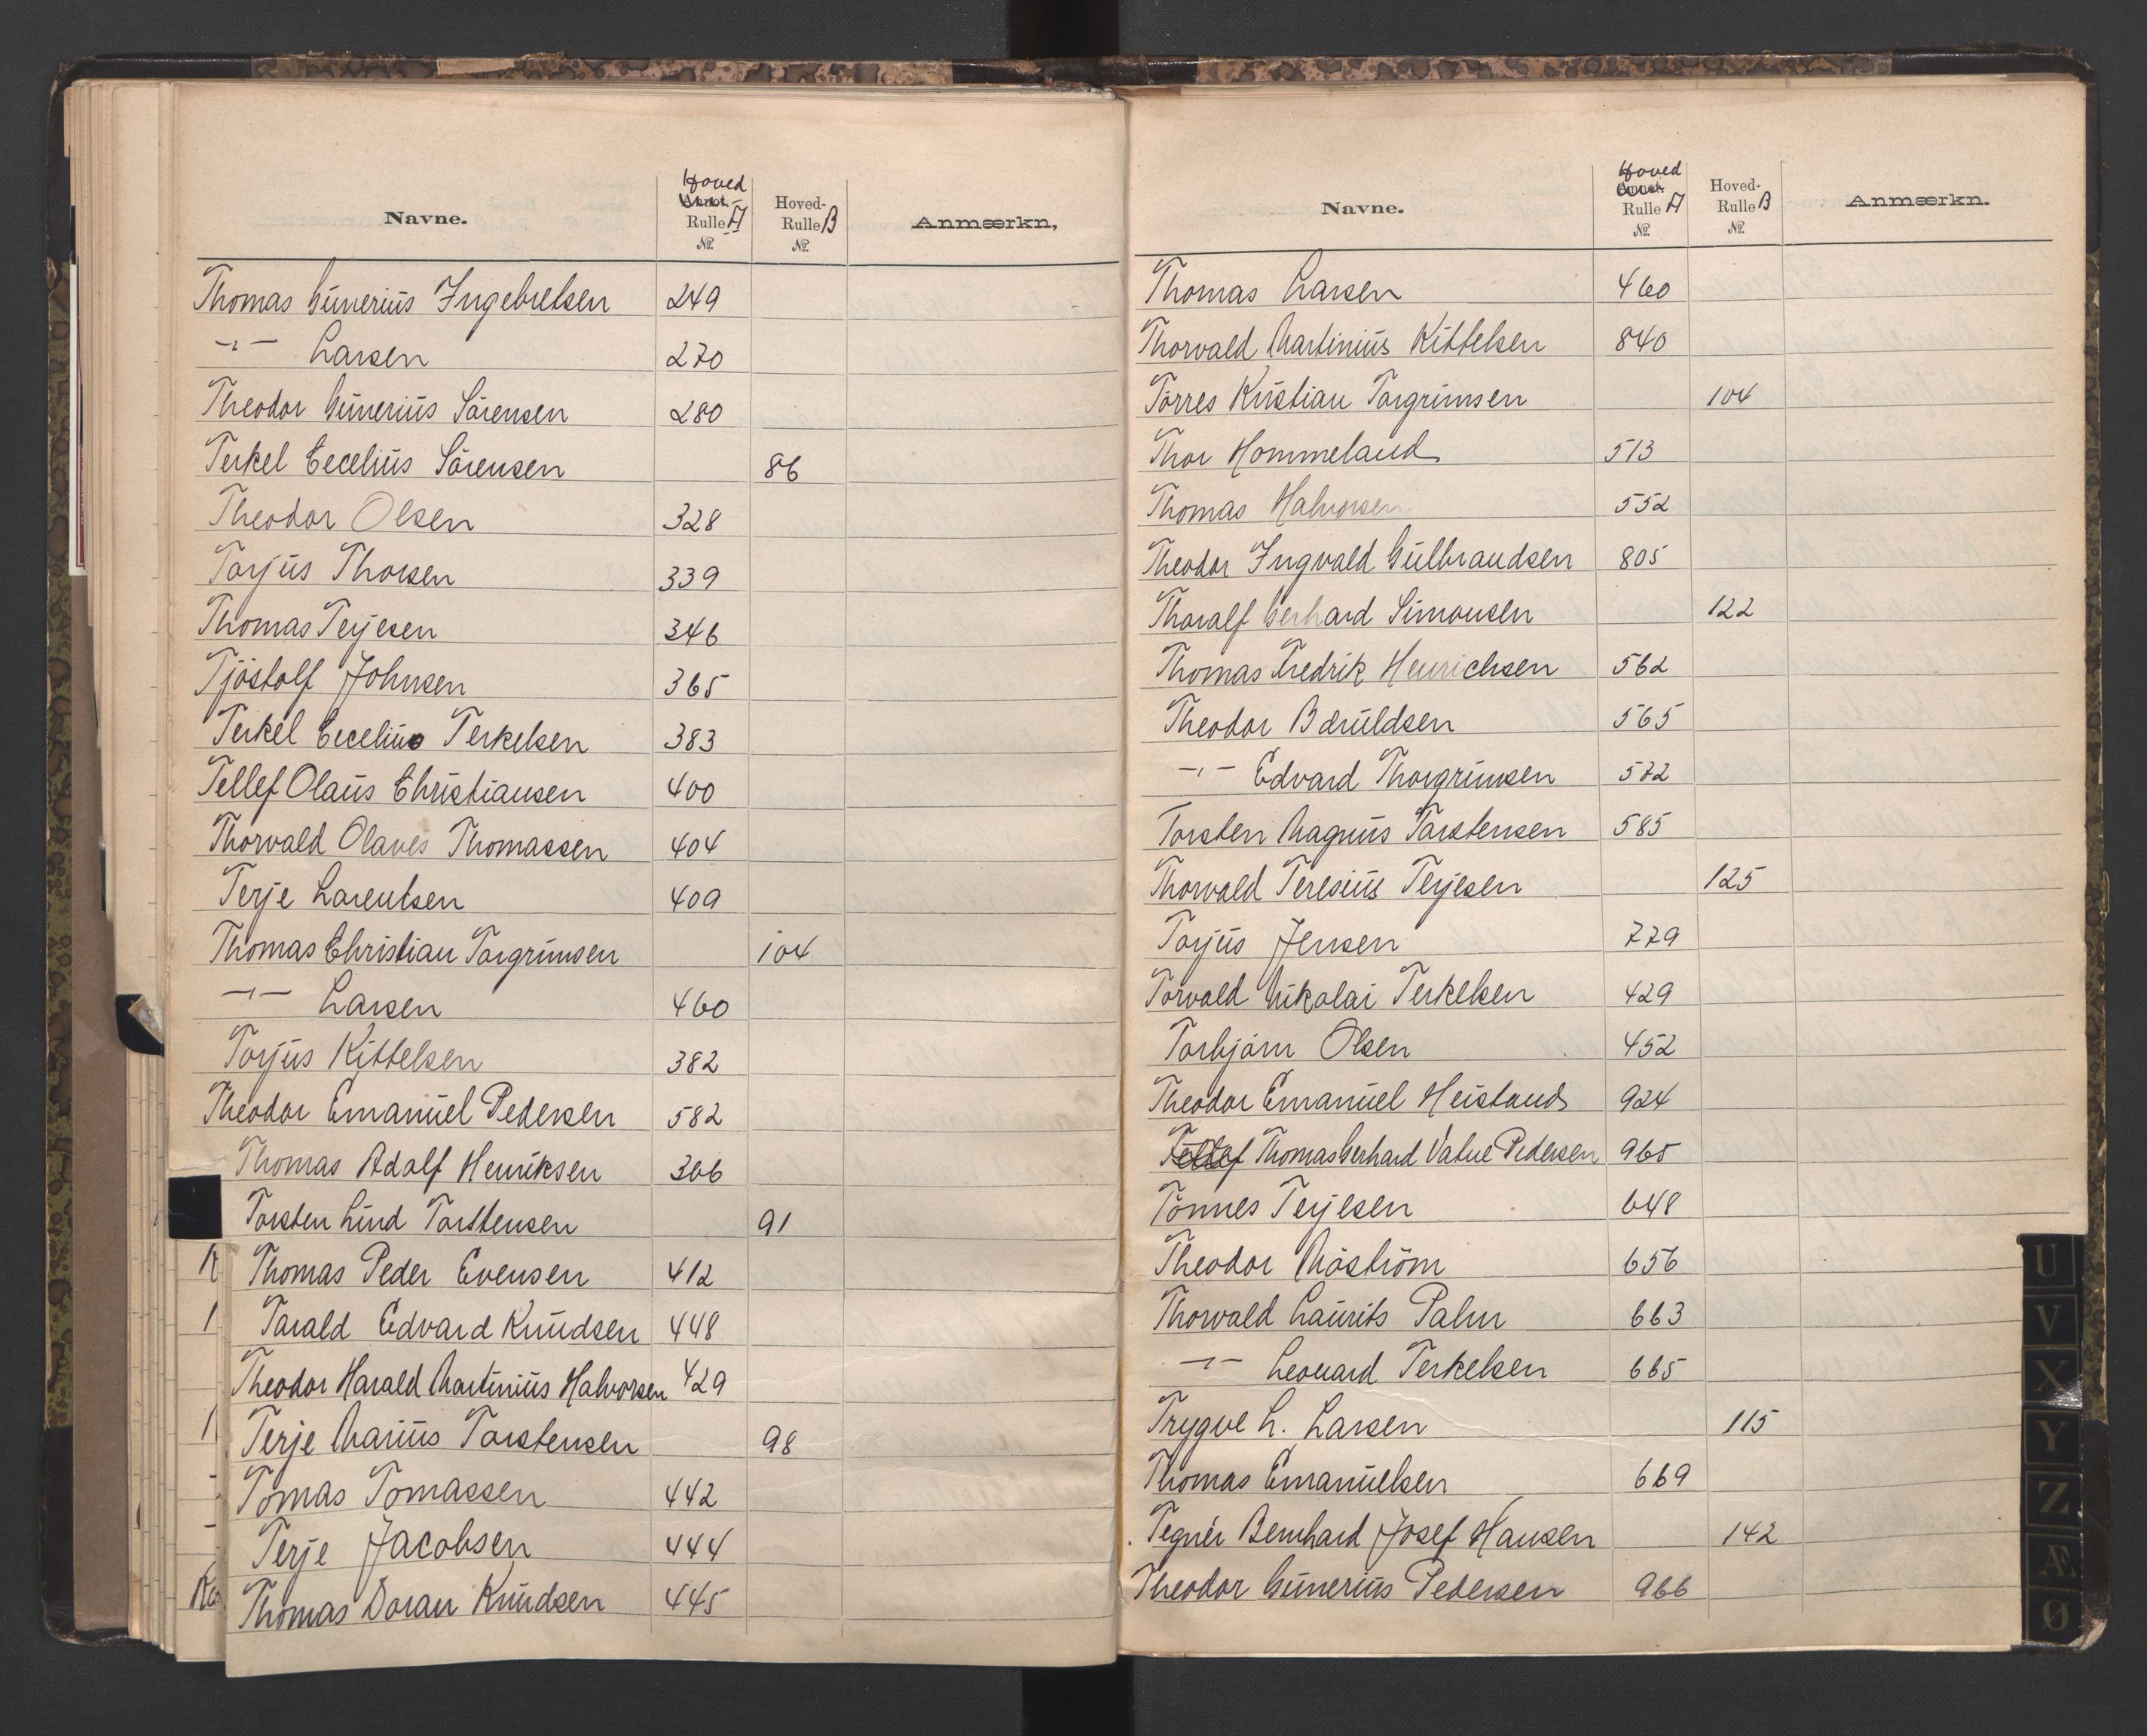 Navne. Hoved Rulle A № Hoved-Rulle B № Anmærkn,
Thomas Gunerius Ingebretsen 249
-"- Larsen 270
Theodor Gunerius Sörensen 280
Terkel Cecelius Sörensen 86
Theodor Olsen 328
Torjus Thorsen 339
Thomas Terjesen 346
Tjöstolf Johnsen 365
Terkel Cecelius Terkelsen 383
Tellef Olaus Christiansen 400
Thorvald Olaves Thomassen 404
Terje Larentsen 409
Thomas Christian Torgrimsen 104
-"- Larsen 460
Torjus Kittelsen 382
Theodor Emanuel Pedersen 582
Thomas Adolf Henriksen 306
Torsten Lind Torstensen 91
Thomas Peder Evensen 412
Tarald Edvard Knudsen 448
Theodor Harald Martinius Halvorsen 429
Terje Marius Torstensen 98
Tomas Tomassen 442
Terje Jacobsen 444
Thomas Doran Knudsen 445
Navne. Hoved Rulle A № Hoved-Rulle B № Anmærkn.
Thomas Larsen 460
Thorvald Martinius Kittelsen 840
Törres Kristian Torgrimsen 104
Thor Hommeland 513
Thomas Halvorsen 552
Theodor Ingvald Gulbrandsen 805
Thoralf Gerhard Simonsen 122
Thomas Fredrik Henrichsen 562
Theodor Bæruldsen 565
-"- Edvard Thorgrimsen 572
Torsten Magnus Torstensen 585
Thorvald Teresius Terjesen 125
Torjus Jensen 779
Torvald Nikolai Terkelsen 429
Torbjörn Olsen 452
Theodor Emanuel Heistand 924
Tellef Thomas Gerhard Value Pedersen 965
Tönnes Terjesen 648
Theodor Möström 656
Thorvald Laurits Palm 663
-"- Leonard Terkelsen 665
Trygve L. Larsen 115
Thomas Emanuelsen 669
Tegnér Bernhard Josef Hansen 142
Theodor Gunerius Pedersen 966
U
V
X
Y
Z
Æ
Ø